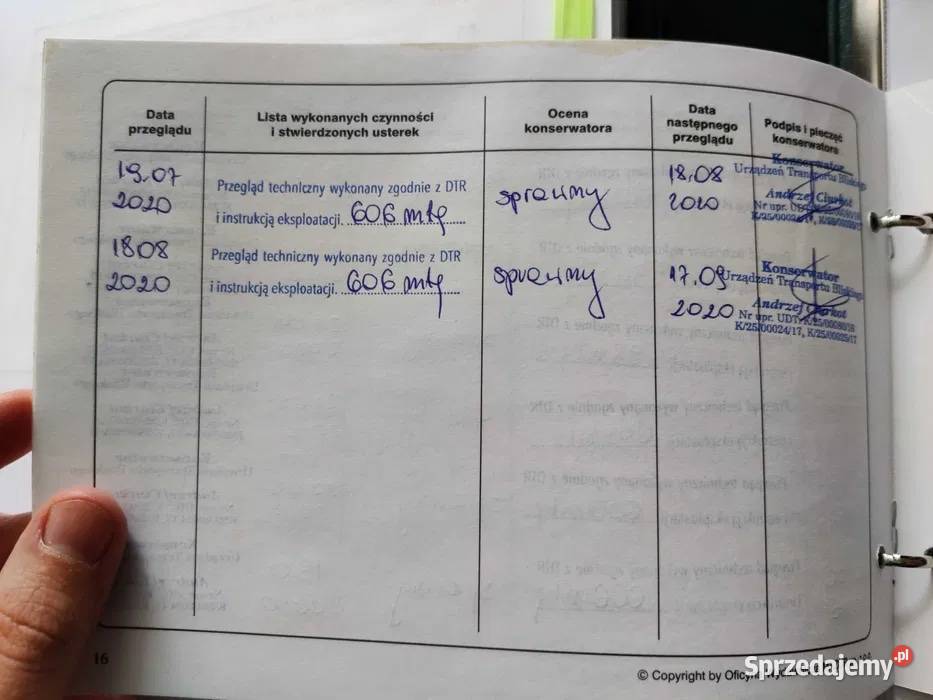 Data
przeglądu
Lista wykonanych czynności
i stwierdzonych usterek
Ocena
konserwatora
Data
następnego
przeglądu
Podpis i pieczęć
konserwatora
19.07
2020
Przegląd techniczny wykonany zgodnie z DTR
i instrukcją eksploatacji. 606 mtg
sprawny
18.08
2020
Konserwator
Urządzeń Transportu Bliskiego
Andrzej
Nr upr.
1808
2020
Przegląd techniczny wykonany zgodnie z DTR
i instrukcją eksploatacji. 606 mtg
sprawny
17.09
2020
Konserwator
Urządzeń Transportu Bliskiego
Andrzej
Nr upr. UDT: K/25/00080/16
K/25/00024/17, K/25/00025/17
16
© Copyright by
Sprzedajemy.pl